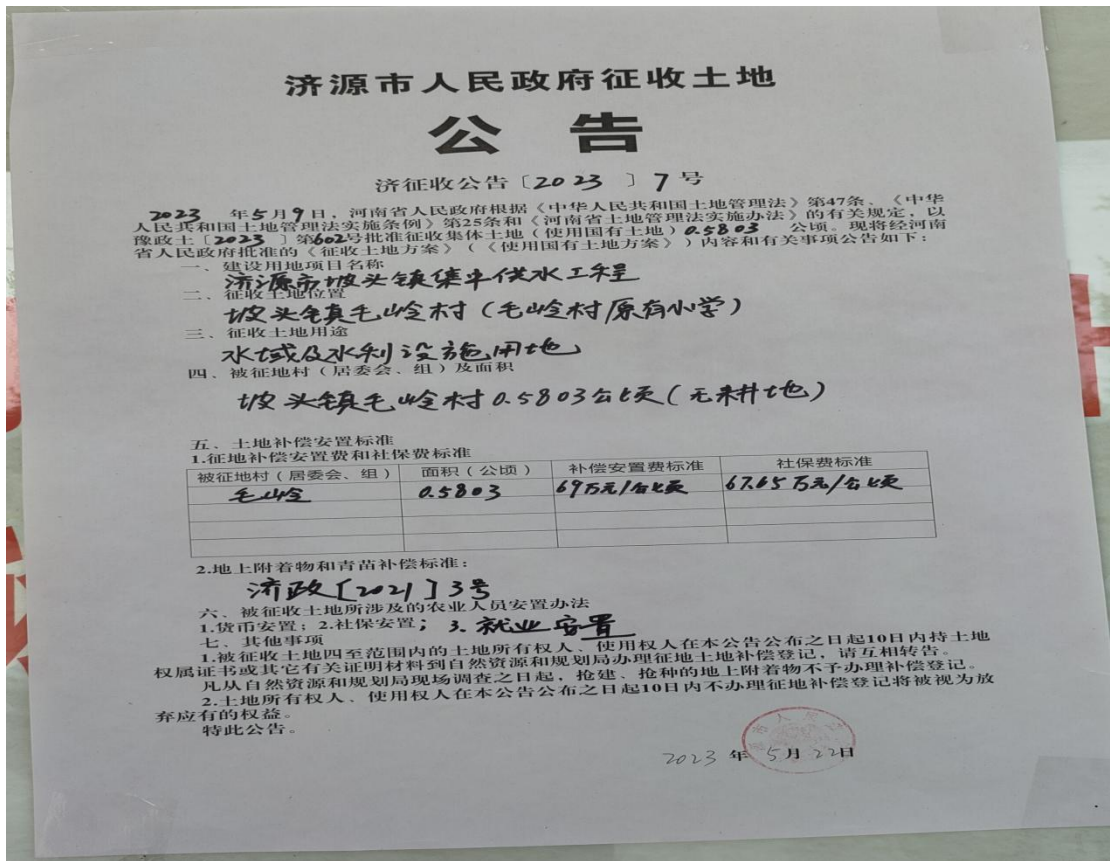 济源市人民政府征收土地
公 告
济征收公告〔2023 〕7号
2023 年5月9日，河南省人民政府根据《中华人民共和国土地管理法》第47条、《中华
人民共和国土地管理法实施条例》第25条和《河南省土地管理法实施办法》的有关规定，以
豫政土〔2023 〕第602号批准征收集体土地（使用国有土地）0.5803 公顷。现将经河南
省人民政府批准的《征收土地方案》（《使用国有土地方案》）内容和有关事项公告如下：
一、建设用地项目名称
济源市坡头镇集中供水工程
二、征收土地位置
坡头镇毛岭村（毛岭村原有小学）
三、征收土地用途
水域及水利设施用地
四、被征地村（居委会、组）及面积
坡头镇毛岭村0.5803公顷（无耕地）
五、土地补偿安置标准
1.征地补偿安置费和社保费标准
被征地村（居委会、组） 面积（公顷） 补偿安置费标准 社保费标准
毛岭 0.5803 69万元/公顷 67.65万元/公顷
2.地上附着物和青苗补偿标准：
济政〔2021〕3号
六、被征收土地所涉及的农业人员安置办法
1.货币安置；2.社保安置；3.就业安置
七、其他事项
1.被征收土地四至范围内的土地所有权人、使用权人在本公告公布之日起10日内持土地
权属证书或其它有关证明材料到自然资源和规划局办理征地土地补偿登记，请互相转告。
凡从自然资源和规划局现场调查之日起，抢建、抢种的地上附着物不予办理补偿登记。
2.土地所有权人、使用权人在本公告公布之日起10日内不办理征地补偿登记将被视为放
弃应有的权益。
特此公告。
2023 年 5月 22日